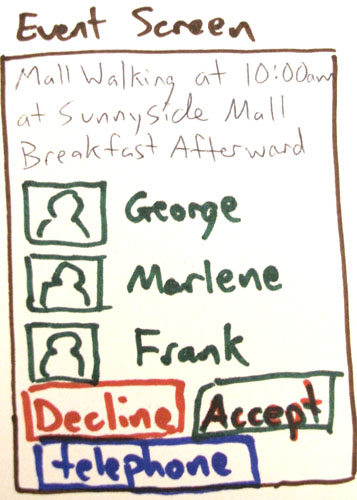 Event Screen
Mall Walking at 10:00am
at Sunnyside Mall
Breakfast Afterward
George
Marlene
Frank
Decline Accept
telephone